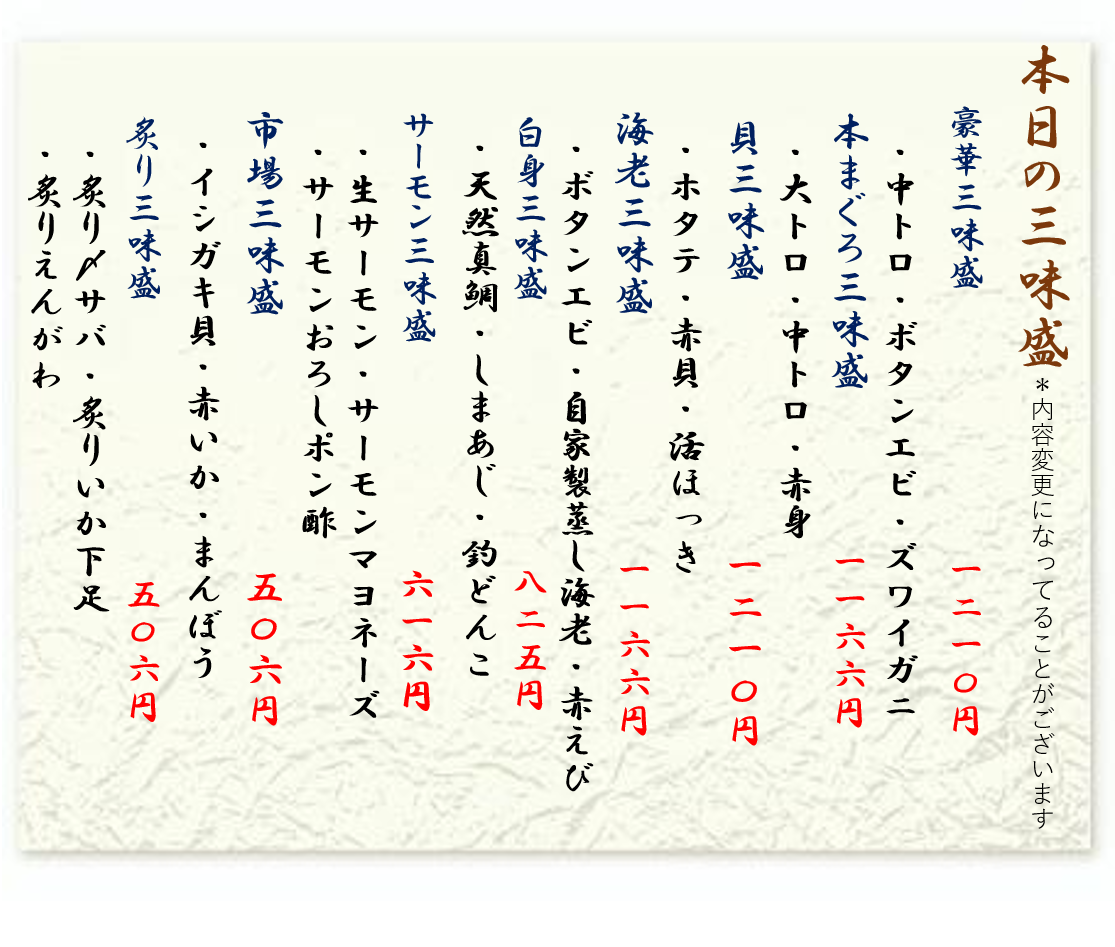 本日の三味盛
＊内容変更になってることがございます
豪華三味盛　一二一〇円
・中トロ・ボタンエビ・ズワイガニ
本まぐろ三味盛　一一六六円
・大トロ・中トロ・赤身
貝三味盛　一二一〇円
・ホタテ・赤貝・活ほっき
海老三味盛　一一六六円
・ボタンエビ・自家製蒸し海老・赤えび
白身三味盛　八二五円
・天然真鯛・しまあじ・釣どんこ
サーモン三味盛　六一六円
・生サーモン・サーモンマヨネーズ
・サーモンおろしポン酢
市場三味盛　五〇六円
・イシガキ貝・赤いか・まんぼう
炙り三味盛　五〇六円
・炙り〆サバ・炙りいか下足
・炙りえんがわ